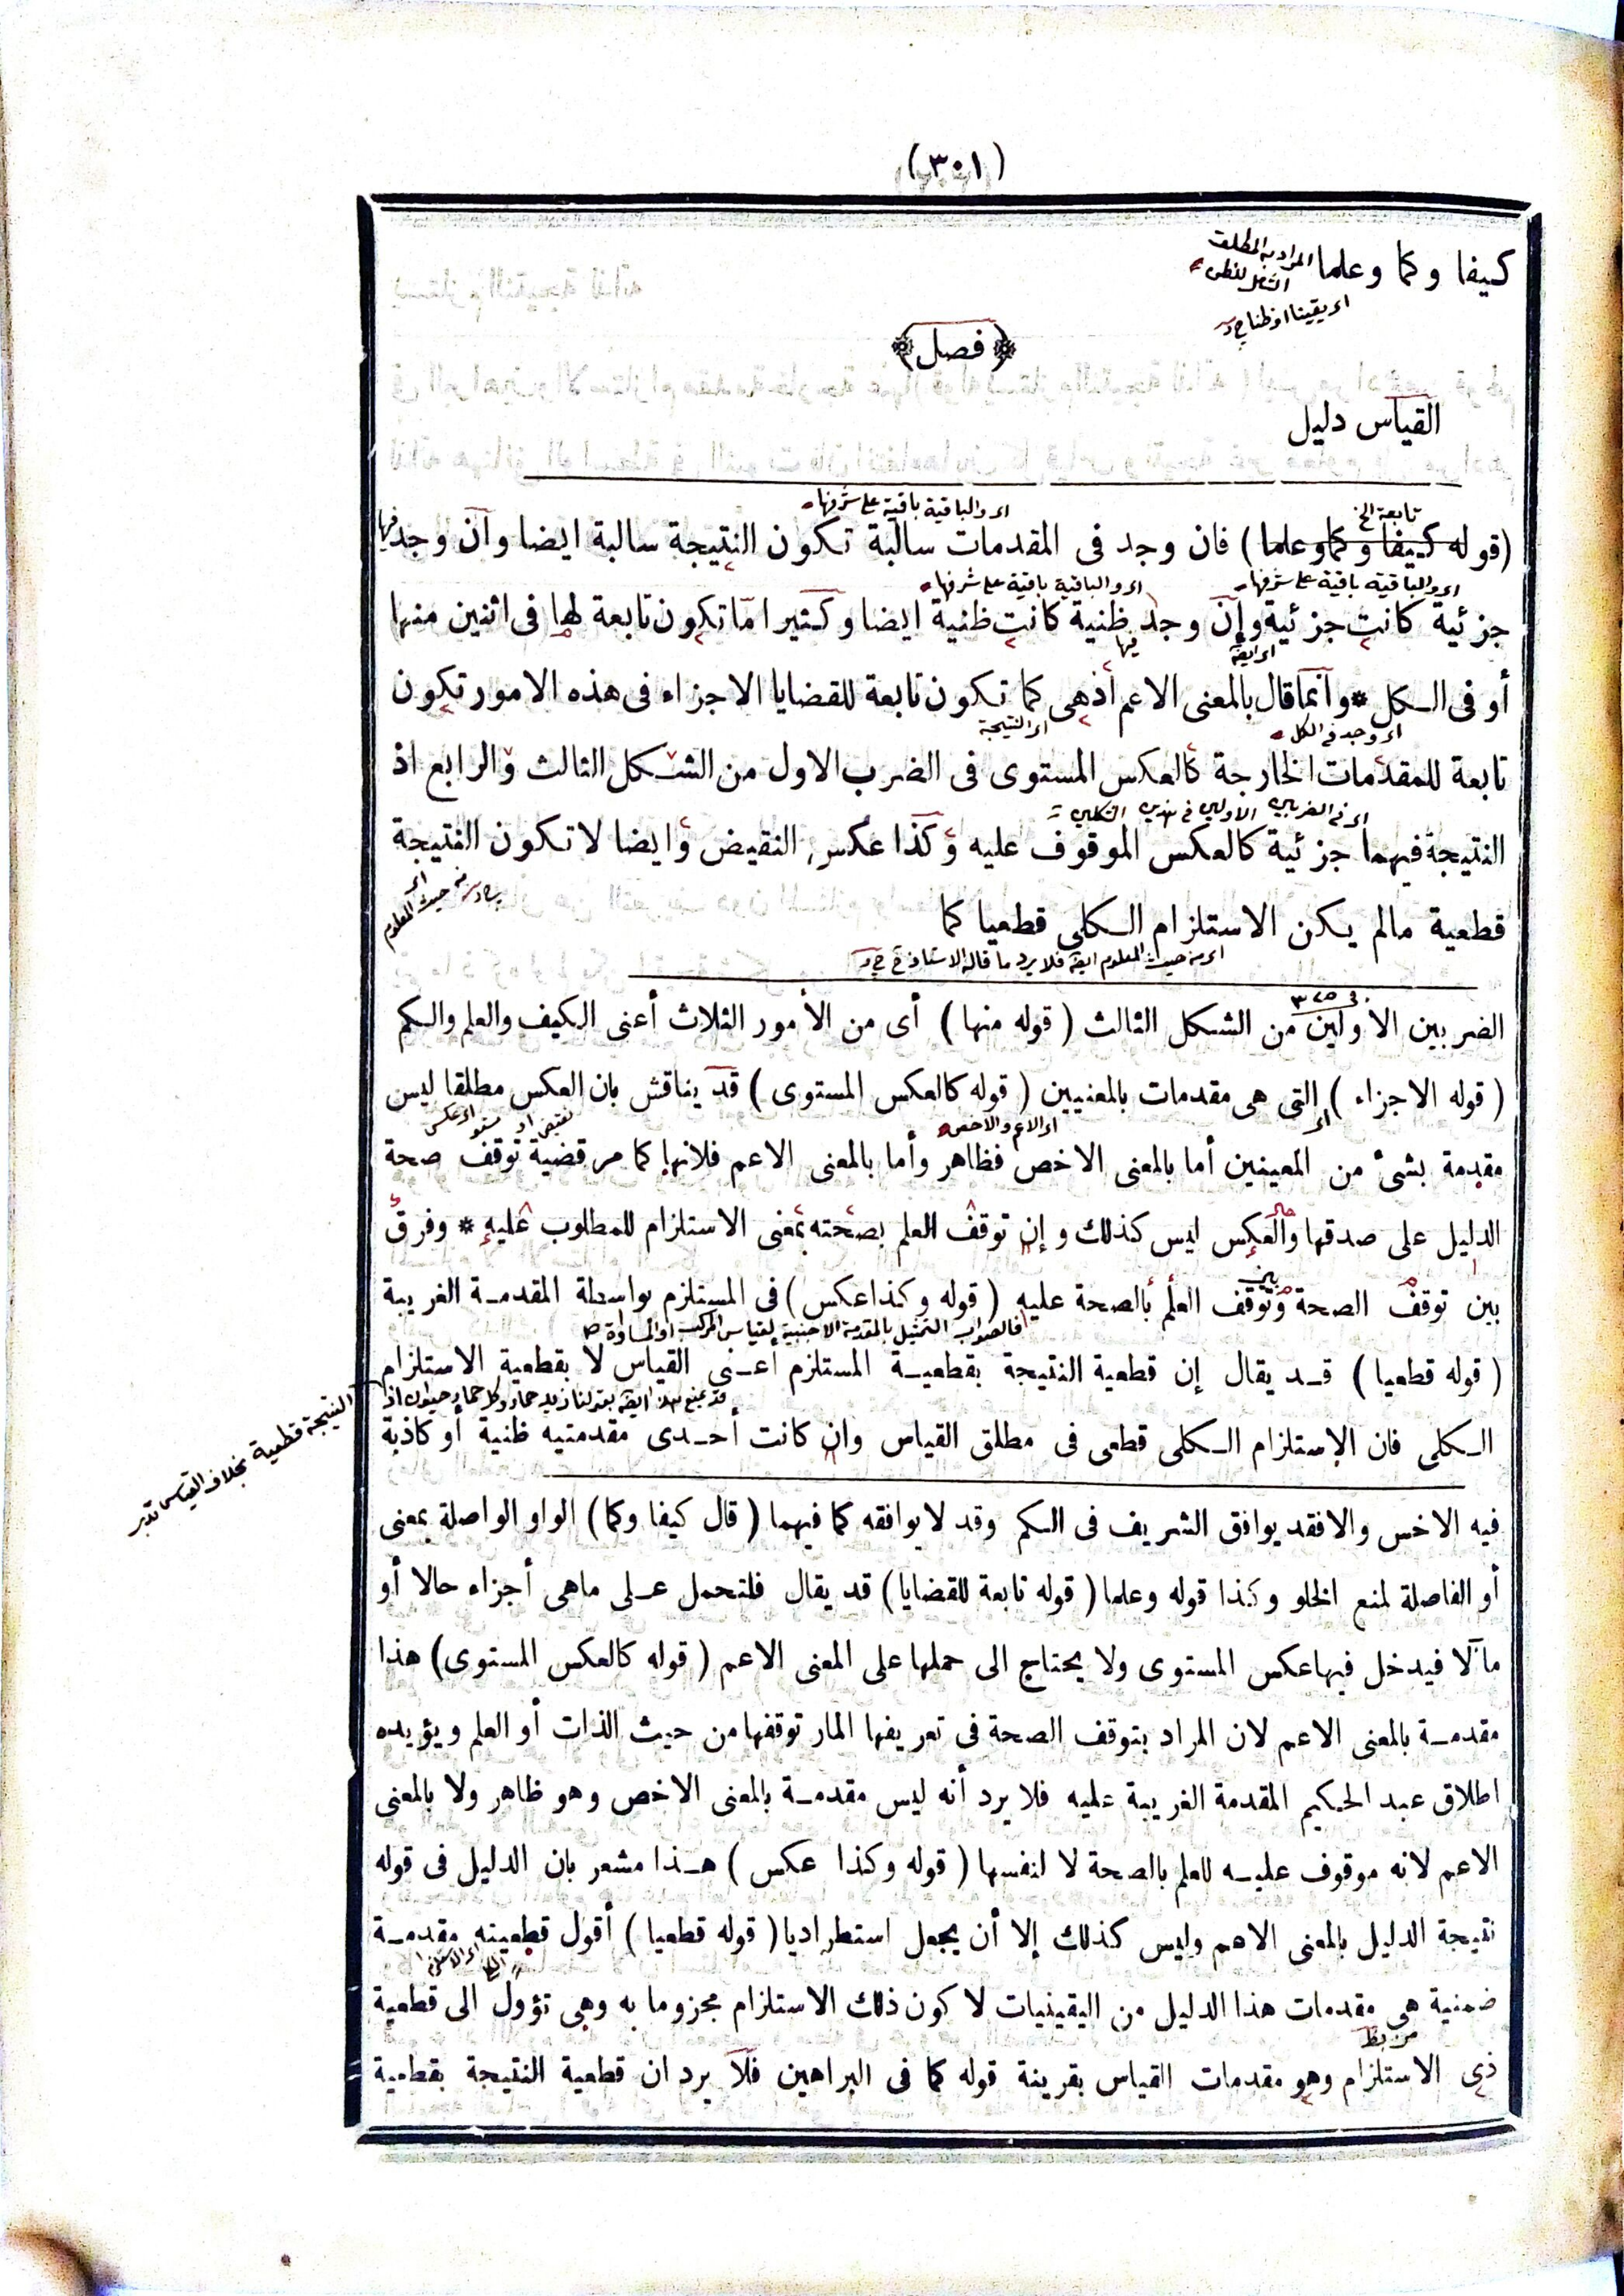 (٣٠١)
كيفا وكما وعلما
المراد به المطلق
الشامل للظن
اى يقينا او ظنا
﴿فصل﴾
القياس دليل
اى والباقية باقية على شرفها
تابعة الخ
(قوله كيفا وكما وعلما) فان وجد فى المقدمات سالبة تكون النتيجة سالبة ايضا وان وجد فيها
اى والباقية باقية على شرفها اى والباقية باقية على شرفها
جزئية كانت جزئية وإن وجد ظنية كانت ظنية ايضا وكثيرا ما تكون تابعة لها فى اثنين منها
فيها
اى ايضا
أو فى الكل * وانما قال بالمعنى الاعم اذ هى كما تكون تابعة للقضايا الاجزاء فى هذه الامور تكون
اى وجد فى الكل اى النتيجة
تابعة للمقدمات الخارجة كالعكس المستوى فى الضرب الاول من الشكل الثالث والرابع اذ
اى فى الضربين الاولين فى هذين الشكلين
النتيجة فيهما جزئية كالعكس الموقوف عليه وكذا عكس النقيض وايضا لا تكون النتيجة
اى من حيث المعلوم
قطعية مالم يكن الاستلزام الكلى قطعيا كما
اى من حيث المعلوم ايضا فلا يرد ما قاله الاستاذ
الضربين الاولين من الشكل الثالث (قوله منها) أى من الأمور الثلاث أعنى الكيف والعلم والكم
(قوله الاجزاء) التى هى مقدمات بالمعنيين (قوله كالعكس المستوى) قد يناقش بان العكس مطلقا ليس
اى الاعم والاخص
اى عكس مستو او نقيض
مقدمة بشئ من المعينين أما بالمعنى الاخص فظاهر وأما بالمعنى الاعم فلانها كما مر قضية توقف صحة
الدليل على صدقها والعكس ليس كذلك وإن توقف العلم بصحته بمعنى الاستلزام للمطلوب عليه * وفرق
بين
بين توقف الصحة وتوقف العلم بالصحة عليه (قوله وكذا عكس) فى المستلزم بواسطة المقدمة الغريبة
فالصواب التمثيل بالمقدمة الاجنبية لقياس المركب او المساواة
(قوله قطعيا) قد يقال إن قطعية النتيجة بقطعية المستلزم أعنى القياس لا بقطعية الاستلزام
قد يمنع هذا ايضا بقولنا زيد حمار وكل حمار حيوان اذ
النتيجة قطعية بخلاف القياس تدبر
الكلى فان الاستلزام الكلى قطعى فى مطلق القياس وان كانت أحدى مقدمتيه ظنية أو كاذبة
فيه الاخس والا فقد يوافق الشريف فى الكم وقد لا يوافقه كما فيهما (قال كيفا وكما) الواو الواصلة بمعنى
أو الفاصلة لمنع الخلو وكذا قوله وعلما (قوله تابعة للقضايا) قد يقال فلتحمل على ماهى أجزاء حالا أو
مآلا فيدخل فيها عكس المستوى ولا يحتاج الى حملها على المعنى الاعم (قوله كالعكس المستوى) هذا
مقدمة بالمعنى الاعم لان المراد بتوقف الصحة فى تعريفها المار توقفها من حيث الذات أو العلم ويؤيده
اطلاق عبد الحكيم المقدمة الغريبة عليه فلا يرد أنه ليس مقدمة بالمعنى الاخص وهو ظاهر ولا بالمعنى
الاعم لانه موقوف عليه للعلم بالصحة لا لنفسها (قوله وكذا عكس) هذا مشعر بان الدليل فى قوله
نتيجة الدليل بالمعنى الاعم وليس كذلك إلا أن يجعل استطراديا (قوله قطعيا) أقول قطعيته مقدمة
ضمنية هى مقدمات هذا الدليل من اليقينيات لا كون ذلك الاستلزام مجزوما به وهى تؤول الى قطعية
ذى الاستلزام وهو مقدمات القياس بقرينة قوله كما فى البراهين فلا يرد ان قطعية النتيجة بقطعية